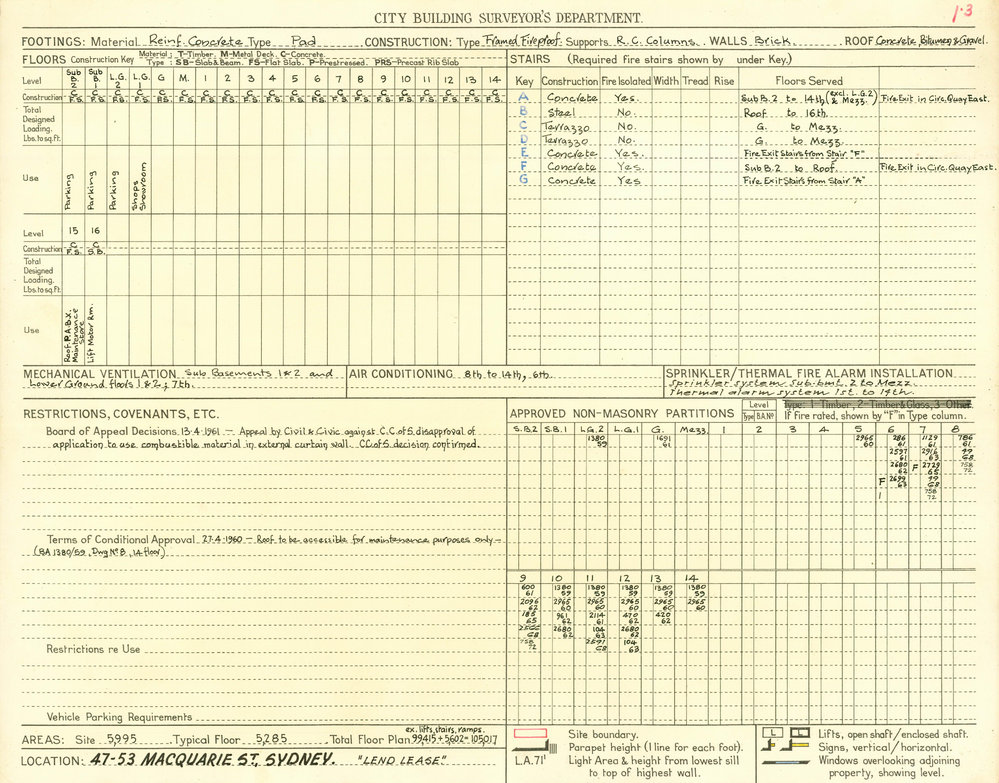 CITY BUILDING SURVEYOR'S DEPARTMENT.
1·3
FOOTINGS: Material Reinf. Concrete Type Pad CONSTRUCTION: Type Framed Fireproof. Supports R.C. Columns. WALLS Brick. ROOF Concrete, Bitumen & Gravel.
FLOORS Construction Key Material; T-Timber. M-Metal Deck. C-Concrete.
Type : SB-Slab & Beam. FS-Flat Slab. P-Prestressed. PRS-Precast Rib Slab
Level Sub B. 2 Sub B. 1 L.G. 2 L.G. 1 G M. 1 2 3 4 5 6 7 8 9 10 11 12 13 14
Construction C F.S. C F.S. C F.S. C F.S. C F.S. C F.S. C F.S. C F.S. C F.S. C F.S. C F.S. C F.S. C F.S. C F.S. C F.S. C F.S. C F.S. C F.S. C F.S. C F.S.
Total
Designed
Loading.
Lbs. to sq. ft.
Use Parking Parking Parking Shops Showroom
Level 15 16
Construction C F.S. C S.B.
Total
Designed
Loading.
Lbs. to sq. ft.
Use Roof. P.A.B.X. Maintenance Store Lift Motor Rm.
STAIRS (Required fire stairs shown by under Key.)
Key Construction Fire Isolated Width Tread Rise Floors Served
A Concrete Yes. Sub B.2 to 14th (excl. L.G.2 & Mezz.) Fire Exit in Circ. Quay East.
B Steel No. Roof to 16th.
C Terrazzo No. G. to Mezz.
D Terrazzo No. G. to Mezz.
E Concrete Yes. Fire Exit Stairs from Stair "F"
F Concrete Yes. Sub B.2 to Roof. Fire Exit in Circ. Quay East.
G Concrete Yes Fire Exit Stairs from Stair "A"
MECHANICAL VENTILATION Sub Basements 1 & 2 and
Lower Ground floors 1 & 2; 7th.
AIR CONDITIONING 8th to 14th, 6th.
SPRINKLER/THERMAL FIRE ALARM INSTALLATION
Sprinkler system Sub-bmt. 2 to Mezz.
Thermal alarm system 1st. to 14th.
RESTRICTIONS, COVENANTS, ETC.
Board of Appeal Decisions 13·4·1961 — Appeal by Civil & Civic against C.C. of S. disapproval of
application to use combustible material in external curtain wall. CC. of S. decision confirmed.
Terms of Conditional Approval 27·4·1960 — Roof to be accessible for maintenance purposes only —
(BA 1380/59, Dwg Nº 8, 14 floor)
Restrictions re Use
Vehicle Parking Requirements
APPROVED NON-MASONRY PARTITIONS Level Type B.A.Nº Type: 1-Timber, 2-Timber & Glass, 3-Other.
If fire rated, shown by "F" in Type column.
S.B.2 S.B.1 L.G.2 L.G.1 G. Mezz. 1 2 3 4 5 6 7 8
1380 59 1691 61 2965 60 286 61 1129 61 786 61
2597 61 2916 63 99 68
2680 62 F 2729 65 758 72
F 2699 63 99 68
1 758 72
9 10 11 12 13 14
600 61 1380 59 1380 59 1380 59 1380 59 1380 59
2096 62 2965 60 2965 60 2965 60 2965 60 2965 60
185 65 961 62 2114 61 470 62 420 62
2566 68 2680 62 104 63 2680 62
758 72 2591 68 104 63
AREAS: Site 5,995 Typical Floor 5,285 Total Floor Plan ex. lifts, stairs, ramps. 99415 + 5602 = 105017
LOCATION: 47-53 MACQUARIE ST, SYDNEY. "LEND LEASE"
Site boundary.
Parapet height (1 line for each foot).
L.A. 71' Light Area & height from lowest sill
to top of highest wall.
L L Lifts, open shaft/enclosed shaft.
Signs, vertical/horizontal.
Windows overlooking adjoining
property, showing level.